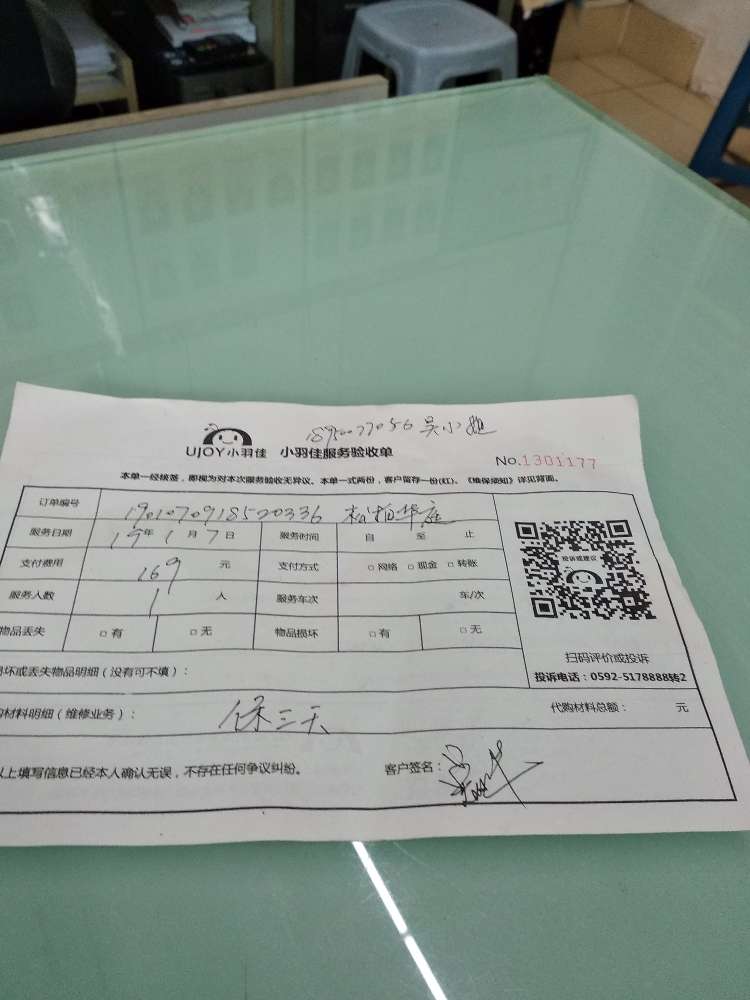 吴小姐
UJOY小羽佳 小羽佳服务验收单
No.1301177
本单一经核签，即视为对本次服务验收无异议。本单一式两份，客户留存一份(红)。《维保须知》详见背面。
订单编号 1901070918520336 松柏华庭
服务日期 19年1月7日 服务时间 自 至 止
支付费用 169 元 支付方式 □网络 □现金 □转账
服务人数 1 人 服务车次 车/次
物品丢失 □有 □无 物品损坏 □有 □无
投诉或建议
扫码评价或投诉
投诉电话：0592-5178888转2
损坏或丢失物品明细（没有可不填）：
购材料明细（维修业务）： 保三天 代购材料总额： 元
以上填写信息已经本人确认无误，不存在任何争议纠纷。 客户签名：